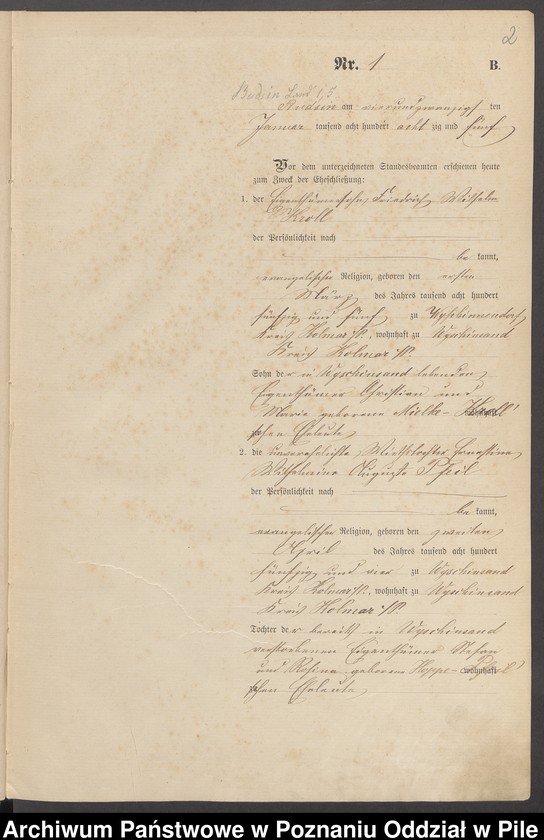 2
Nr. 1 B.
Budsin Land 1,5
Budsin am vierundzwanzigsten
Januar tausend acht hundert achtzig und fünf
Vor dem unterzeichneten Standesbeamten erschienen heute
zum Zweck der Eheschließung:
1. der Eigenthümersohn Friedrich Wilhelm
Kroll
der Persönlichkeit nach
bekannt,
evangelischer Religion, geboren den ersten
März des Jahres tausend acht hundert
fünfzig und fünf zu
Kreis Kolmar i/P., wohnhaft zu Wyschinsand
Kreis Kolmar i/P.
Sohn der in Wyschinsand lebenden
Eigenthümer Christian und
Maria geborene Mielke-Kroll'
schen Eheleute
2. die unverehelichte Ernestine
Wilhelmine Auguste Pfeil
der Persönlichkeit nach
bekannt,
evangelischer Religion, geboren den zweiten
April des Jahres tausend acht hundert
fünfzig und vier zu Wyschinsand
Kreis Kolmar i/P., wohnhaft zu Wyschinsand
Kreis Kolmar i/P.
Tochter der bereits in Wyschinsand
verstorbenen Eigenthümer Stefan
und Rosine geborene Hoppe-Pfeil'
schen Eheleute
Archiwum Państwowe w Poznaniu Oddział w Pile